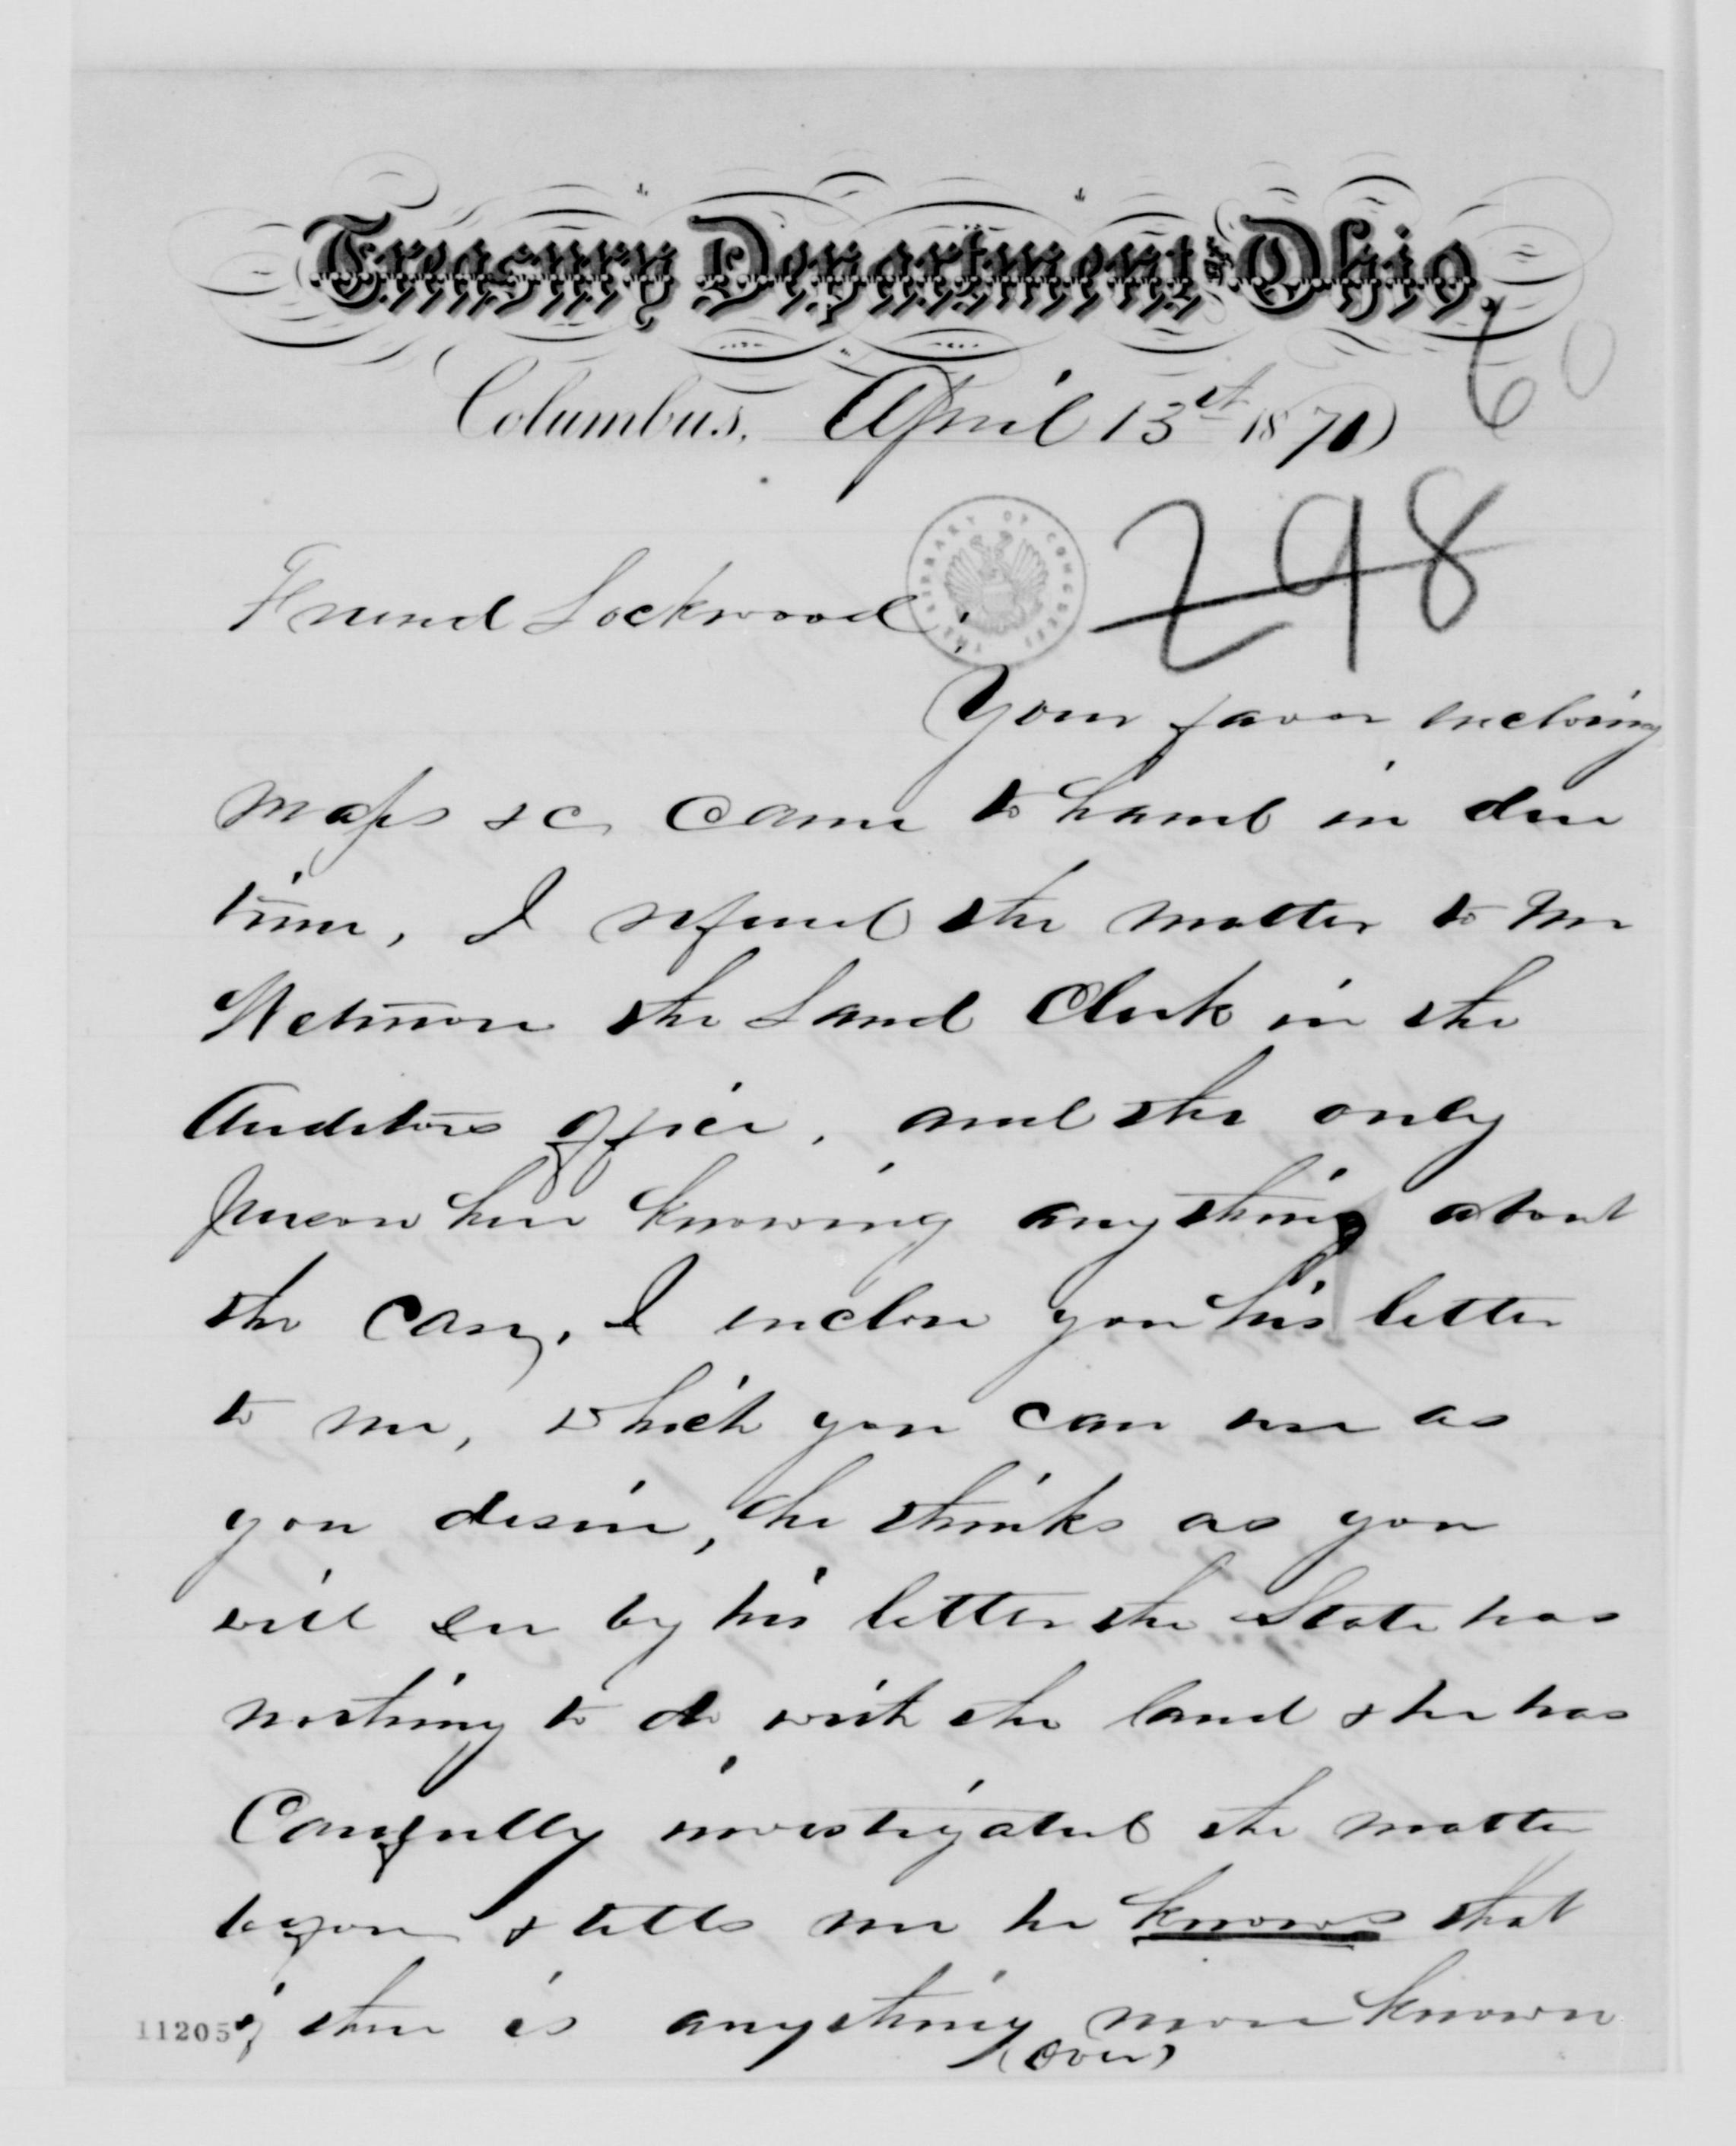 Treasury Department of Ohio.
60
Columbus, April 13th 1870
298
THE LIBRARY OF CONGRESS
Friend Lockwood;
Your favor inclosing
maps &c, came to hand in due
time, I refered the matter to Mr
Wetmore the Land Clerk in the
Auditors office, and the only
person here knowing anything about
the case, I inclose you his letter
to me, which you can use as
you desire, he thinks as you
will see by his letter the State has
nothing to do with the land & he has
Carefully investigated the matter
before & tells me he knows that
if there is anything more known
11205
(over)